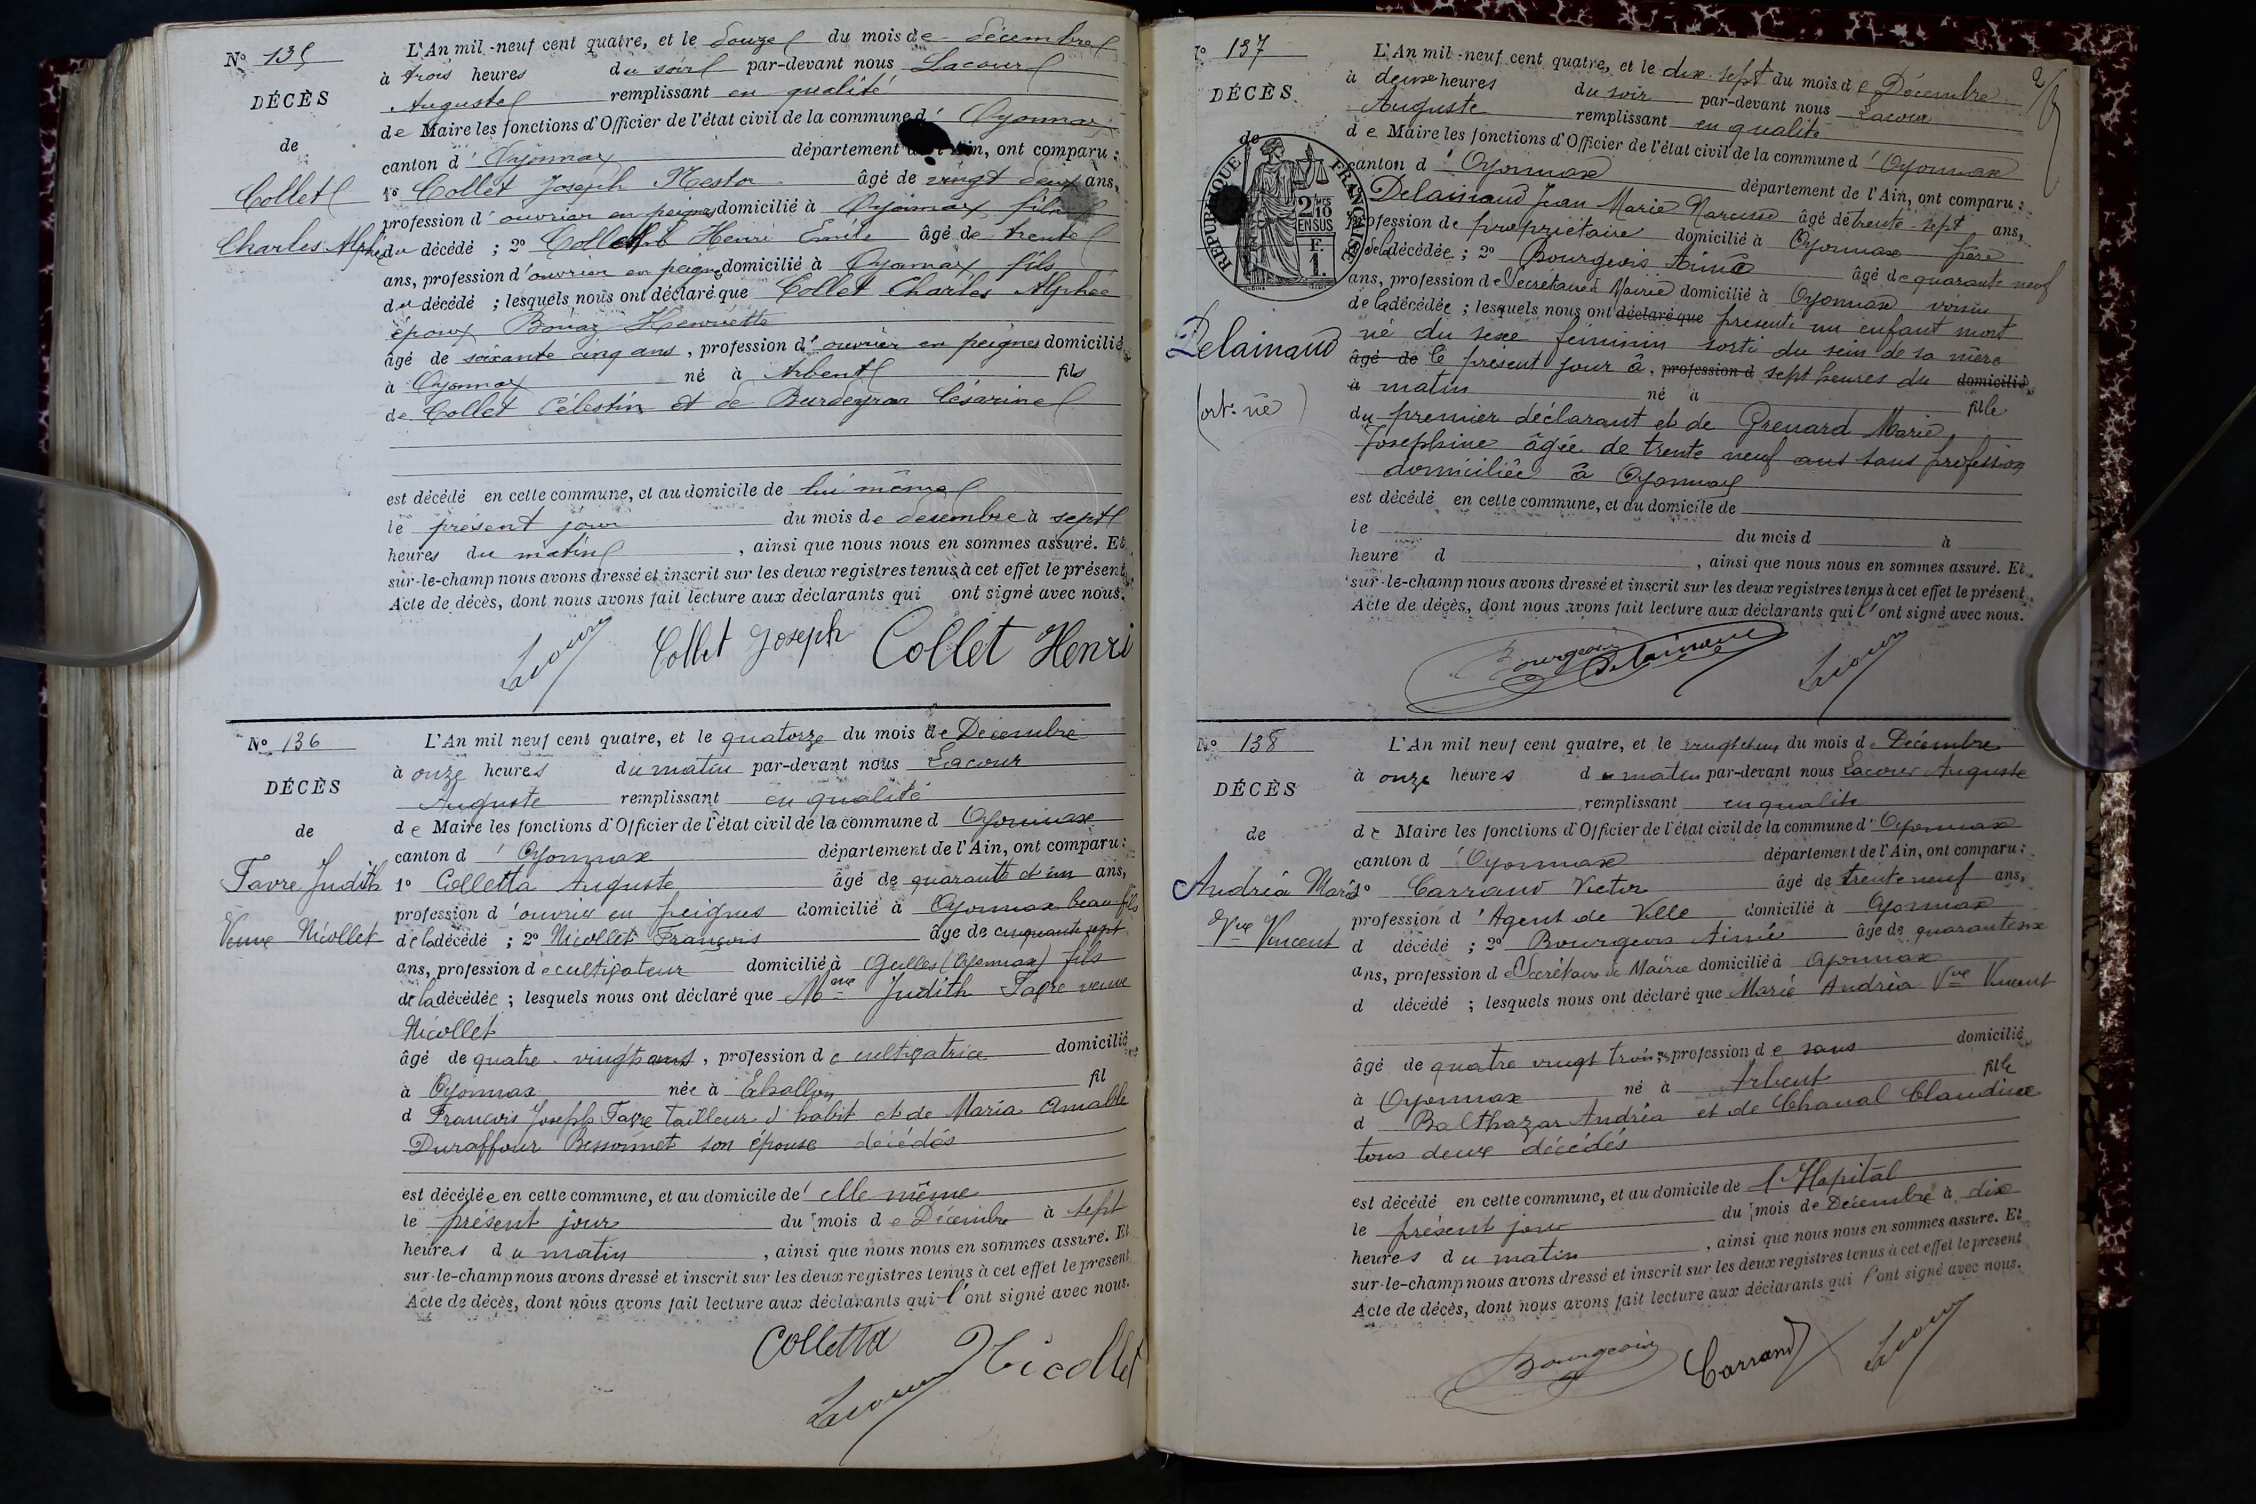 N° 135
DÉCÈS
de
Collet
Charles Alphée
L'An mil-neuf cent quatre, et le douze du mois de décembre
à trois heures du soir par-devant nous Lacour
Auguste remplissant en qualité
de Maire les fonctions d'Officier de l'état civil de la commune d'Oyonnax
canton d'Oyonnax département de l'Ain, ont comparu :
1° Collet Joseph Nestor âgé de vingt deux ans,
profession d'ouvrier en peignes domicilié à Oyonnax fils
du décédé ; 2° Collet Henri Emile âgé de trente
ans, profession d'ouvrier en peignes domicilié à Oyonnax fils
du décédé ; lesquels nous ont déclaré que Collet Charles Alphée
époux Henriette
âgé de soixante cinq ans, profession d'ouvrier en peignes domicilié
à Oyonnax né à Arbent fils
de Collet Célestin et de Césarine
est décédé en cette commune, et au domicile de lui même
le présent jour du mois de décembre à sept
heures du matin, ainsi que nous nous en sommes assuré. Et
sur-le-champ nous avons dressé et inscrit sur les deux registres tenus à cet effet le présent
Acte de décès, dont nous avons fait lecture aux déclarants qui ont signé avec nous.
Lacour Collet Joseph Collet Henri
N° 136
DÉCÈS
de
Favre Judith
Veuve Nicollet
L'An mil neuf cent quatre, et le quatorze du mois de Décembre
à onze heures du matin par-devant nous Lacour
Auguste remplissant en qualité
de Maire les fonctions d'Officier de l'état civil de la commune d Oyonnax
canton d'Oyonnax département de l'Ain, ont comparu :
1° Colletta Auguste âgé de quarante et un ans,
profession d'ouvrier en peignes domicilié à Oyonnax beau fils
de la décédé ; 2° Nicollet François âge de cinquante sept
ans, profession de cultivateur domicilié à Gulles (Oyonnax) fils
de la décédée ; lesquels nous ont déclaré que Judith Favre veuve
Nicollet
âgé de quatre-vingt ans, profession de cultivatrice domicilié
à Oyonnax née à Echallon fil
d François Joseph Favre tailleur d'habit et de Maria Amable
Duraffour Bessonnet son épouse décédés
est décédée en cette commune, et au domicile de elle même
le présent jour du mois de Décembre à sept
heures du matin, ainsi que nous nous en sommes assuré. Et
sur-le-champ nous avons dressé et inscrit sur les deux registres tenus à cet effet le présent
Acte de décès, dont nous avons fait lecture aux déclarants qui l'ont signé avec nous.
Colletta Nicollet
Lacour
N° 137
DÉCÈS
de
RÉPUBLIQUE FRANÇAISE
2/10
EN SUS
F
1.
Delainaud
(mort-né)
L'An mil-neuf cent quatre, et le dix-sept du mois de Décembre
à deux heures du soir par-devant nous Lacour
Auguste remplissant en qualité
de Maire les fonctions d'Officier de l'état civil de la commune d'Oyonnax
canton d'Oyonnax département de l'Ain, ont comparu :
Delainaud Jean Marie Narcisse âgé de trente-sept ans,
profession de propriétaire domicilié à Oyonnax père
de la décédée ; 2° Bourgeois Aimé âgé de quarante neuf
ans, profession de Secrétaire de Mairie domicilié à Oyonnax voisin
de la décédée ; lesquels nous ont déclaré que présenté un enfant mort
né du sexe féminin sorti du sein de sa mère
âgé de le présent jour à, profession d sept heures du domicilié
à matin né à fille
du premier déclarant et de Grenard Marie
Josephine âgée de trente neuf ans sans profession
domiciliée à Oyonnax
est décédé en cette commune, et au domicile de
le du mois d à
heure d , ainsi que nous nous en sommes assuré. Et
sur-le-champ nous avons dressé et inscrit sur les deux registres tenus à cet effet le présent
Acte de décès, dont nous avons fait lecture aux déclarants qui l'ont signé avec nous.
Bourgeois Delainaud Lacour
N° 138
DÉCÈS
de
Andréa Marie
Vve Vincent
L'An mil neuf cent quatre, et le vingt et un du mois d Décembre
à onze heures du matin par-devant nous Lacour Auguste
remplissant en qualité
de Maire les fonctions d'Officier de l'état civil de la commune d'Oyonnax
canton d'Oyonnax département de l'Ain, ont comparu :
1° Carrand Victor âgé de trente neuf ans,
profession d'Agent de Ville domicilié à Oyonnax
d décédé ; 2° Bourgeois Aimé âge de quarante
ans, profession de Secrétaire de Mairie domicilié à Oyonnax
d décédé ; lesquels nous ont déclaré que Marie Andréa Vve Vincent
âgé de quatre vingt trois, profession de sans domicilié
à Oyonnax né à Arbent fille
d Balthazar Andréa et de Chanal Claudine
tous deux décédés
est décédé en cette commune, et au domicile de l'Hôpital
le présent jour du mois de Décembre à dix
heures du matin, ainsi que nous nous en sommes assuré. Et
sur-le-champ nous avons dressé et inscrit sur les deux registres tenus à cet effet le présent
Acte de décès, dont nous avons fait lecture aux déclarants qui l'ont signé avec nous.
Bourgeois Carrand Lacour